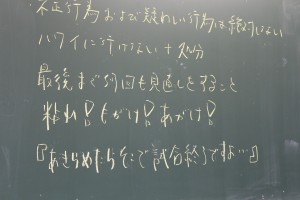 不正行為および疑わしい行為は絶対しない
ハワイに行けない+処分
最後まで何回も見直しをすること
粘れ!もがけ!あがけ!
『あきらめたらそこで試合終了ですよ…』